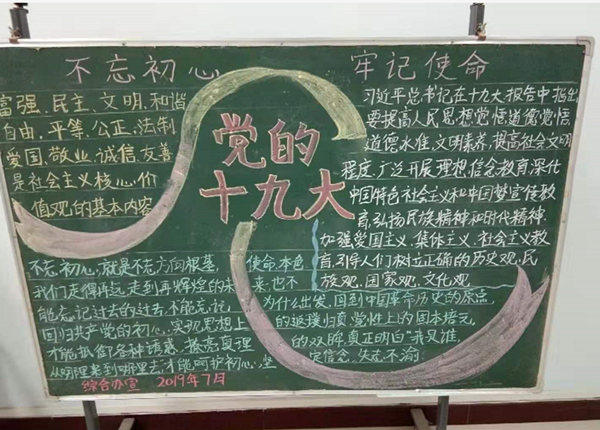 不忘初心
牢记使命
富强、民主、文明、和谐
自由、平等、公正、法制
爱国、敬业、诚信、友善
是社会主义核心价
值观的基本内容
党的
十九大
习近平总书记在十九大报告中指出
要提高人民思想觉悟道德觉悟
道德水准、文明素养,提高社会文明
程度,广泛开展理想信念教育,深化
中国特色社会主义和中国梦宣传教
育,弘扬民族精神和时代精神,
加强爱国主义、集体主义、社会主义教
育,引导人们树立正确的历史观、民
族观、国家观、文化观
不忘初心,就是不忘方向根基,使命本色
我们走得再远,走到再辉煌的未来,也不
能忘记过去的过去,不能忘记,为什么出发,回到中国革命历史的原点,
回归共产党的初心,实现思想上的返璞归真,党性上的固本培元,
才能抵御各种诱惑,拨亮真理的双眸,真正明白"我是谁、
从哪里来,到哪里去,才能呵护初心,坚定信念,矢志不渝
综合办宣 2019年7月